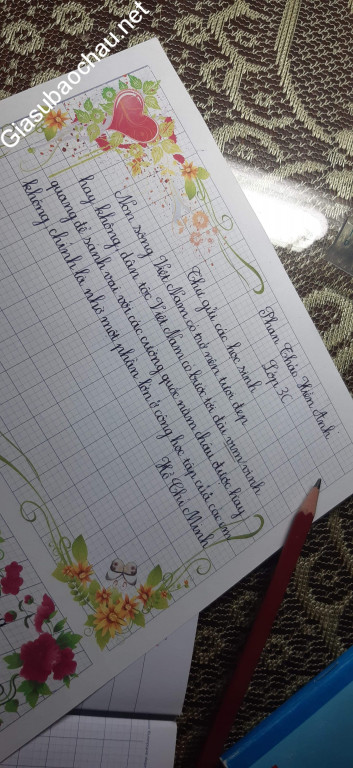 Giasubaochau.net
Phan Thái Hiền Anh
Lớp 3C
Thư gửi các học sinh
Non sông Việt Nam có trở nên tươi đẹp
hay không, dân tộc Việt Nam có bước tới đài vim vinh
quang để sánh vai với các cường quốc năm châu được hay
không chính là nhờ một phần lớn ở công học tập của các em
Hồ Chí Minh